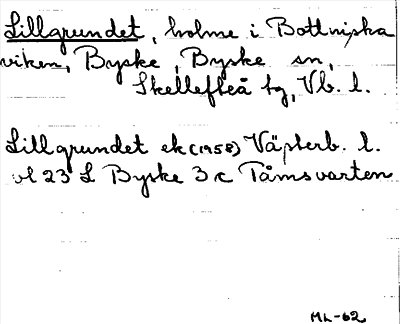 Lillgrundet, holme i Bottniska
viken, Byske, Byske sn,
Skellefteå tg, Vb. l.
Lillgrundet ek (1958) Västerb. l.
bl 23 L Byske 3 c Tåmsvarten
ML-62